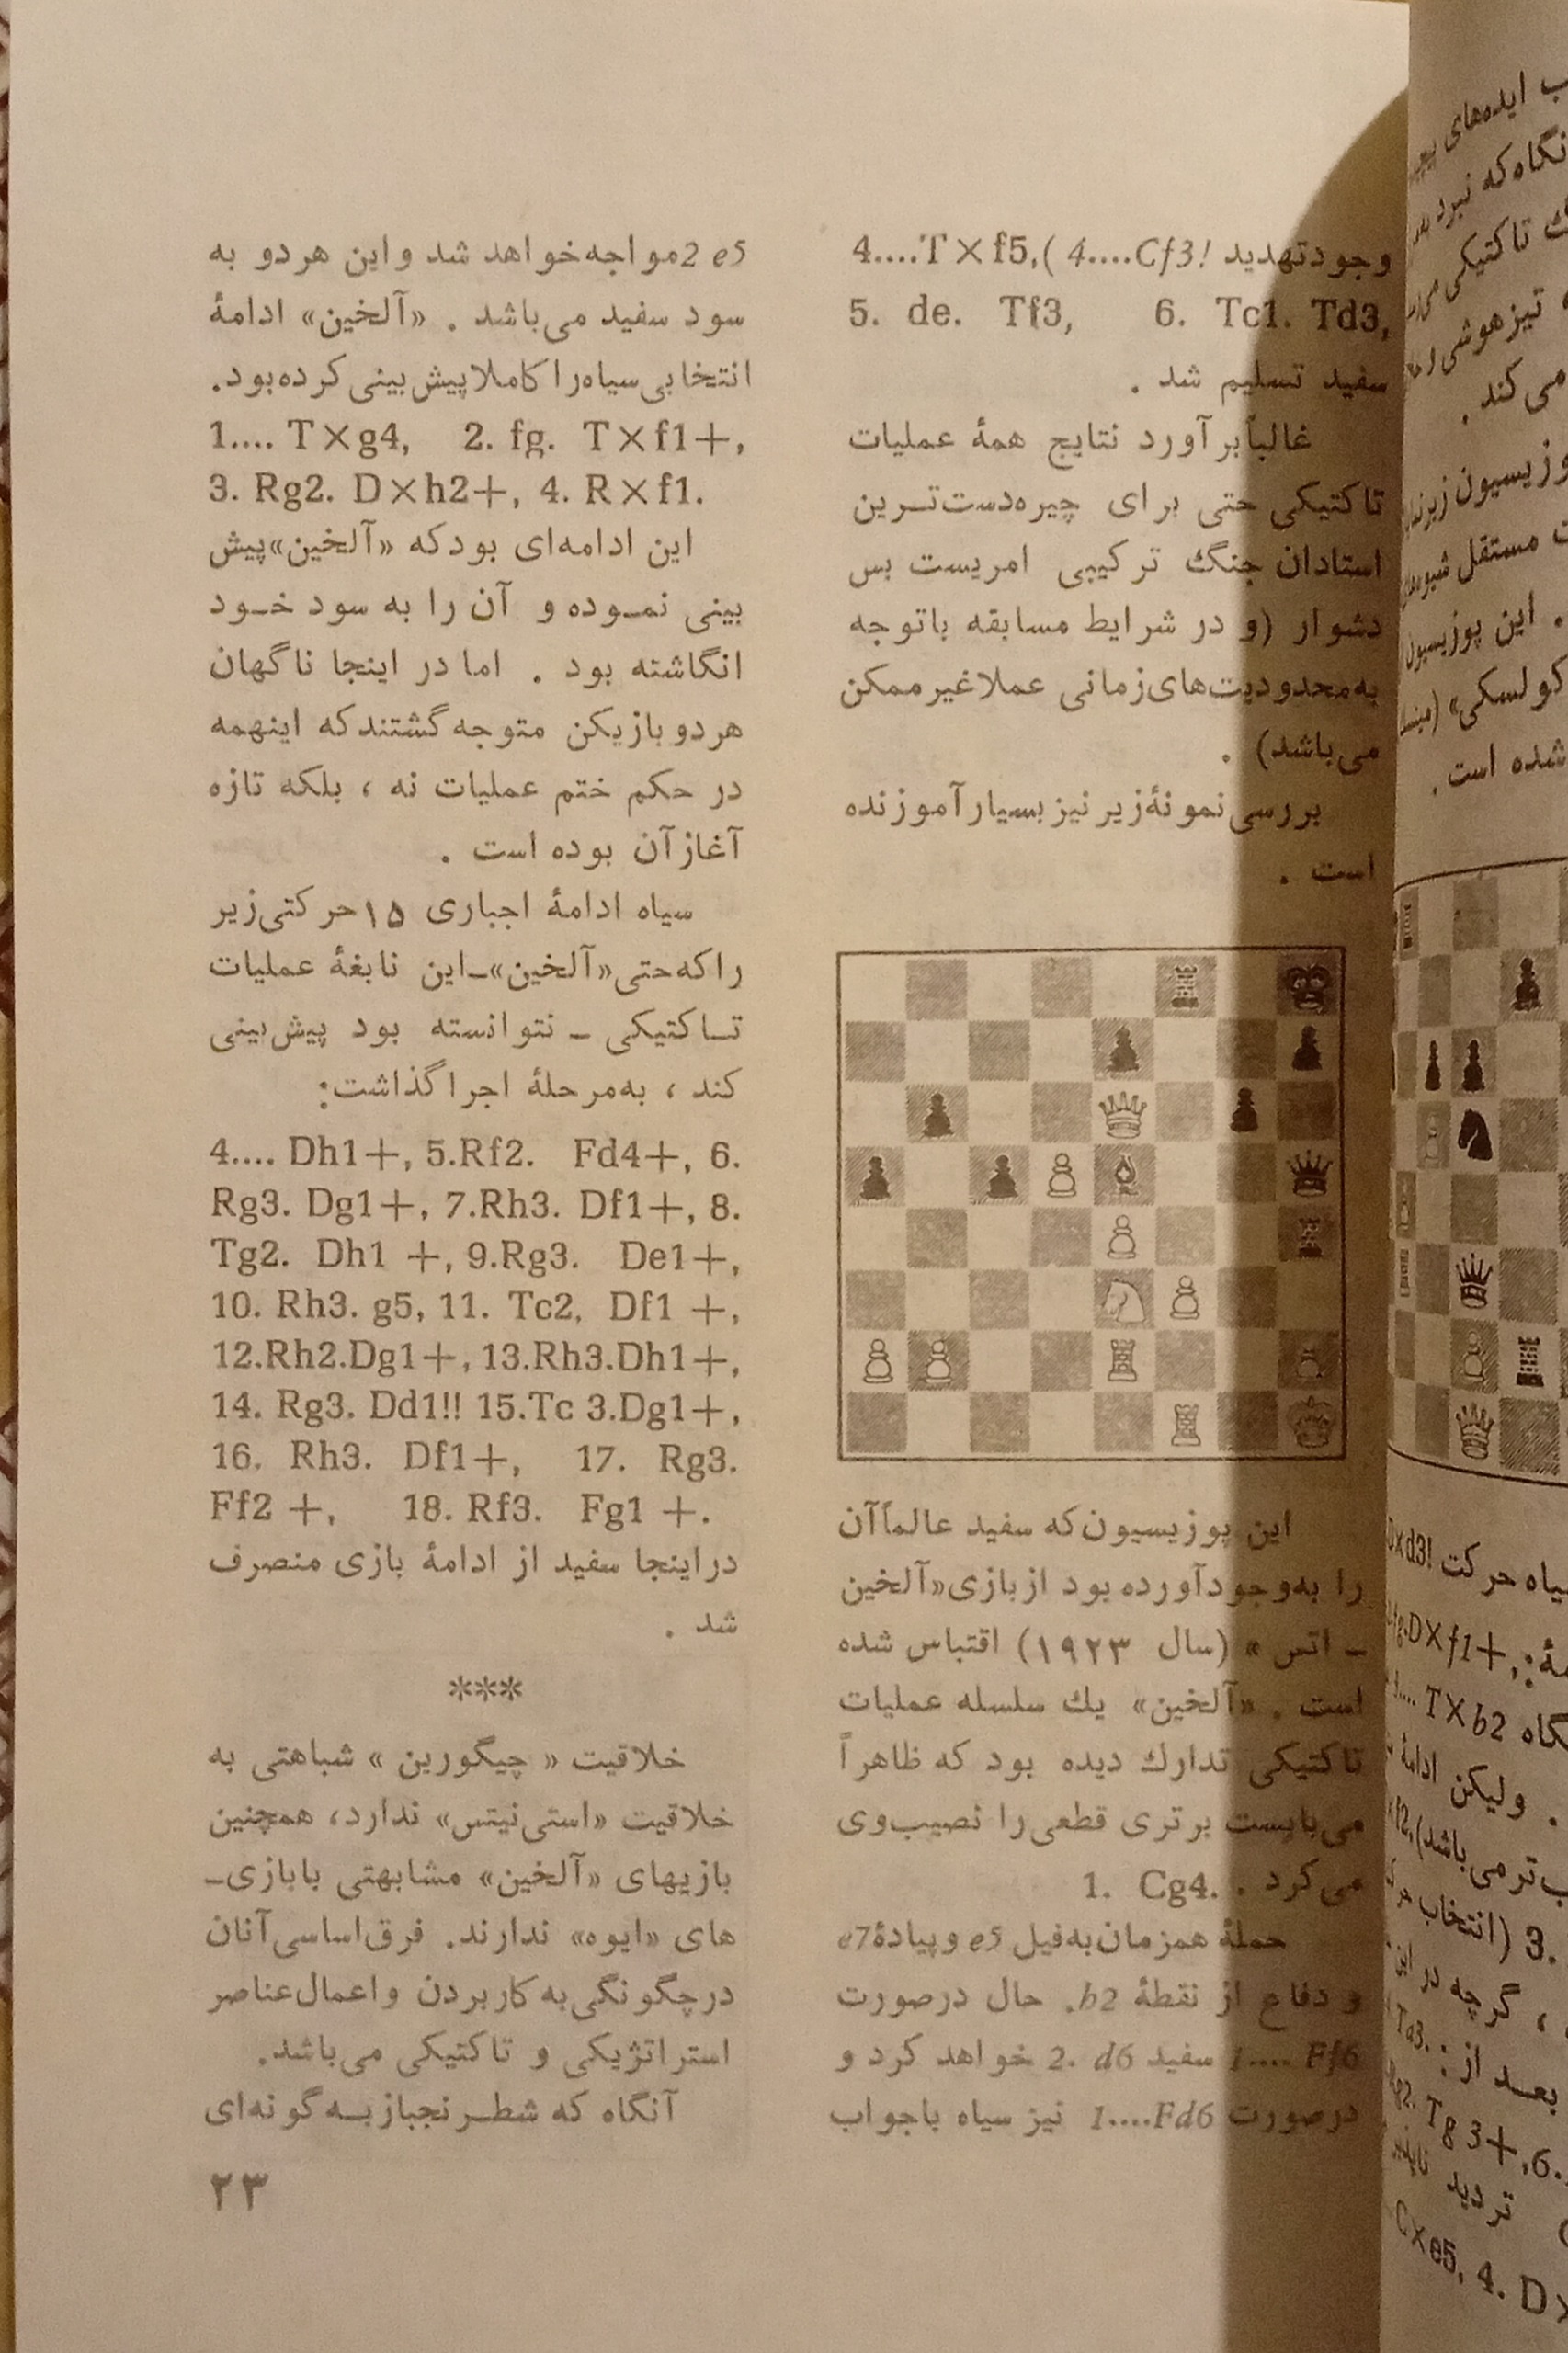 وجودتهدید 4....T×f5,( 4....Cf3!
5. de. Tf3, 6. Tc1. Td3,
سفید تسلیم شد .
غالباً برآورد نتایج همهٔ عملیات
تاکتیکی حتی برای چیره‌دست‌ترین
استادان جنگ ترکیبی امریست بس
دشوار (و در شرایط مسابقه باتوجه
به‌محدودیت‌های‌زمانی عملاغیرممکن
می‌باشد) .
بررسی نمونهٔ زیر نیز بسیار آموزنده
است .
این پوزیسیون که سفید عالماً آن
را به‌وجودآورده بود از بازی«آلخین
ـ اتس » (سال ۱۹۲۳) اقتباس شده
است . «آلخین» یك سلسله عملیات
تاکتیکی تدارك دیده بود که ظاهراً
می‌بایست برتری قطعی را نصیب‌وی
می‌کرد . 1. Cg4.
حملهٔ همزمان به‌فیل e5 و پیادهٔ e7
و دفاع از نقطهٔ b2. حال درصورت
1.... Ff6 سفید 2. d6 خواهد کرد و
درصورت 1....Fd6 نیز سیاه باجواب
2 e5 مواجه‌خواهد شد واین هردو به
سود سفید می‌باشد . «آلخین» ادامهٔ
انتخابی‌سیاه‌را کاملا پیش‌بینی کرده‌بود.
1.... T×g4, 2. fg. T×f1+,
3. Rg2. D×h2+, 4. R×f1.
این ادامه‌ای بود که «آلخین»پیش
بینی نمـوده و آن را به سود خـود
انگاشته بود . اما در اینجا ناگهان
هردو بازیکن متوجه گشتند که اینهمه
در حکم ختم عملیات نه ، بلکه تازه
آغاز آن بوده است .
سیاه ادامهٔ اجباری ۱۵حرکتی‌زیر
را که‌حتی«آلخین»ـ‌این نابغهٔ عملیات
تـاکتیکی ـ نتوانسته بود پیش‌بینی
کند ، به‌مرحلهٔ اجرا گذاشت:
4.... Dh1+, 5.Rf2. Fd4+, 6.
Rg3. Dg1+, 7.Rh3. Df1+, 8.
Tg2. Dh1 +, 9.Rg3. De1+,
10. Rh3. g5, 11. Tc2, Df1 +,
12.Rh2.Dg1+, 13.Rh3.Dh1+,
14. Rg3. Dd1!! 15.Tc 3.Dg1+,
16. Rh3. Df1+, 17. Rg3.
Ff2 +, 18. Rf3. Fg1 +.
دراینجا سفید از ادامهٔ بازی منصرف
شد .
***
خلاقیت « چیگورین » شباهتی به
خلاقیت «استی‌نیتس» ندارد، همچنین
بازیهای «آلخین» مشابهتی بابازی‌ـ
های «ایوه» ندارند. فرق‌اساسی‌آنان
درچگونگی‌به کاربردن و اعمال‌عناصر
استراتژیکی و تاکتیکی می‌باشد.
آنگاه که شطـرنجباز بـه گونه‌ای
۲۳